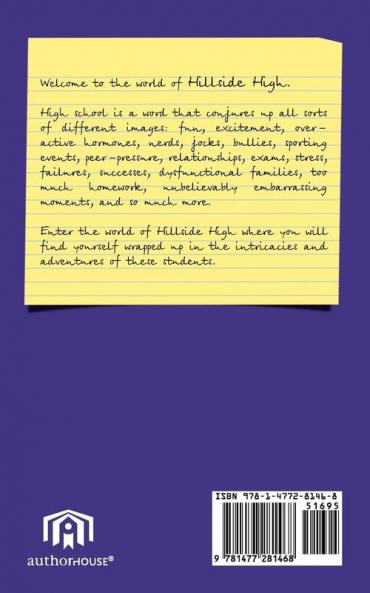 Welcome to the world of Hillside High.
High school is a word that conjures up all sorts
of different images: fun, excitement, over-
active hormones, nerds, jocks, bullies, sporting
events, peer-pressure, relationships, exams, stress,
failures, successes, dysfunctional families, too
much homework, unbelievably embarrassing
moments, and so much more.
Enter the world of Hillside High where you will
find yourself wrapped up in the intricacies and
adventures of these students.
ISBN 978-1-4772-8146-8
51695
9 781477 281468
authorHOUSE®